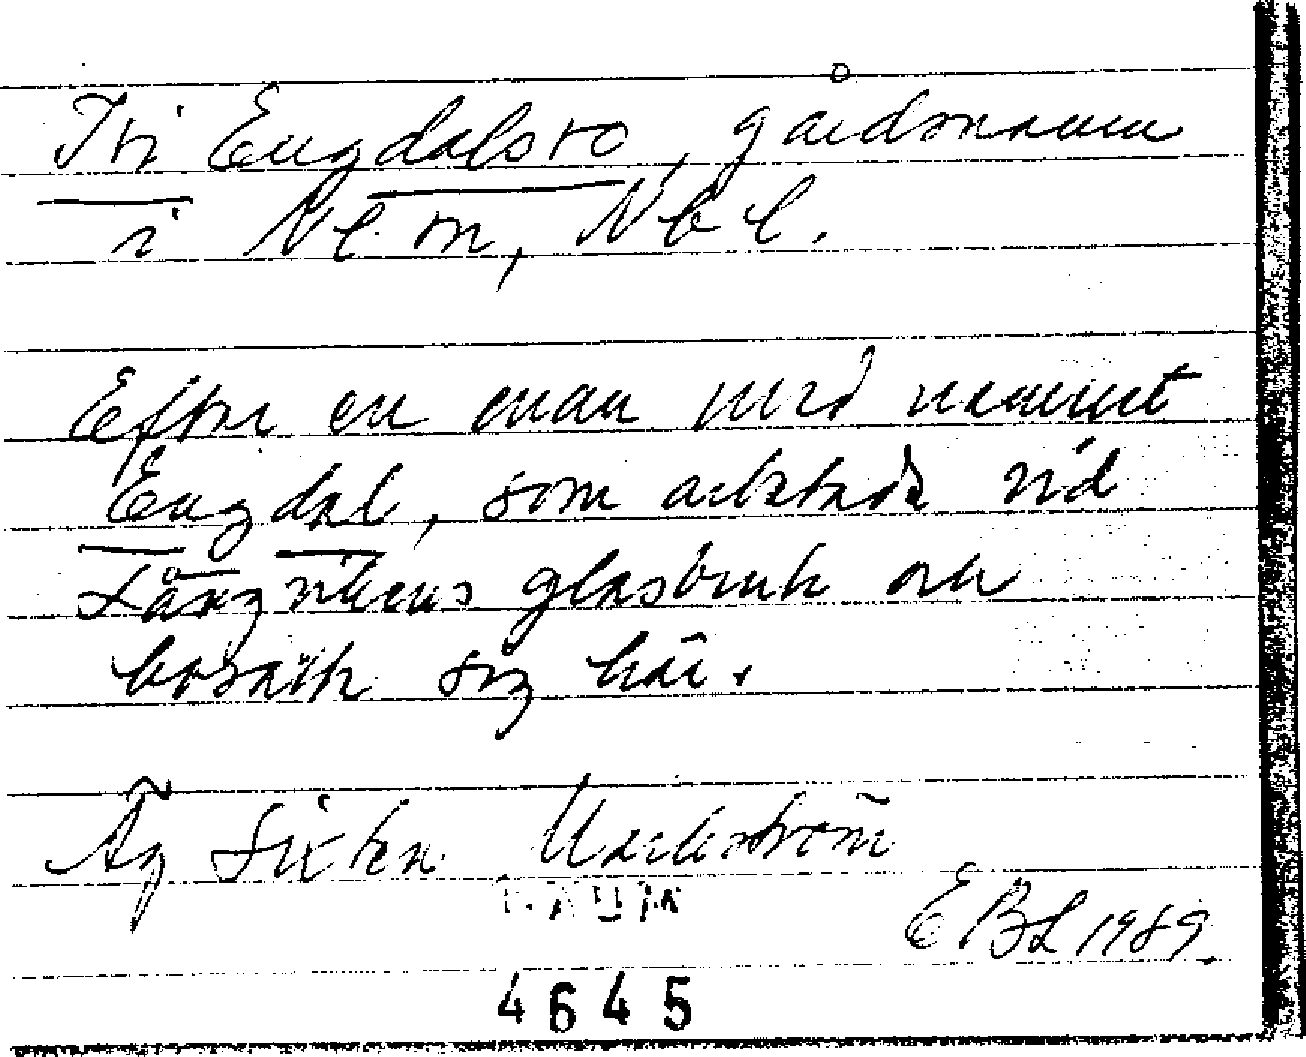 I Engdalsro, gårdsnamn
i Nl. sn, Nbl.
Efter en man med namnet
Engdal, som arbetade vid
Långvikens glasbruk och
bosatte sig här.
Äg Sixten Markström
DAUM
EBL 1989.
4645